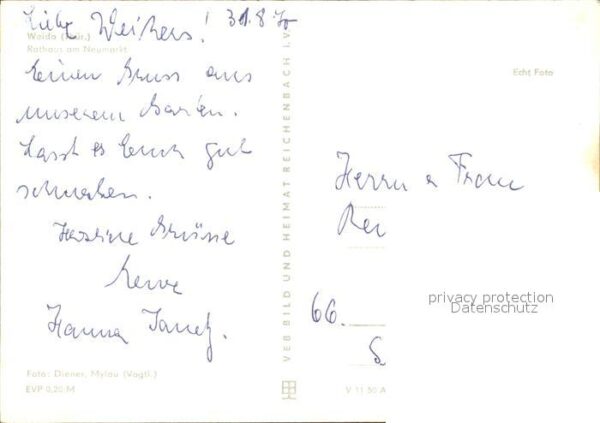 Liebe Weikers! 31.8.70
Weida (Thür.)
Rathaus am Neumarkt
Einen Gruss aus
unserem Garten.
Lasst es Euch gut
schmecken.
Herzliche Grüsse
Hanna
Foto: Diener, Mylau (Vogtl.)
EVP 0,20 M
VEB BILD UND HEIMAT REICHENBACH I.V.
V 11 50 A
Echt Foto
Herrn u Frau
66.
privacy protection
Datenschutz